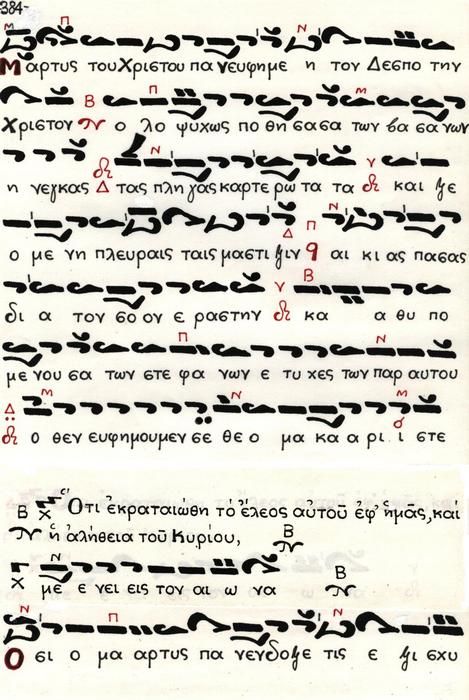 384-
Μαρτυς του Χριστου πα νευφημε η τον Δεσπο την
Χριστον ο λο ψυχως πο θη σασα των βα σα νων
η νεγκας Δ τας πλη γας καρτε ρω τα τα και ξε
ο με νη πλευραις ταις μαστι ξιν αι κι ας πασας
δι α τον σον ε ραστην κα α θυ πο
με νου σα των στε φα νων ε τυ χες των παρ αυτου
ο θεν ευφημουμεν σε θε ο μα κα α ρι ι στε
Ὅτι ἐκραταιωθη τὸ ἔλεος αὐτοῦ ἐφ' ἡμᾶς, καὶ
ἡ ἀλήθεια τοῦ Κυρίου,
με ε νει εις τον αι ω να
Ο σι ο μα αρτυς πα νενδοξε τις ε ξι σχυ